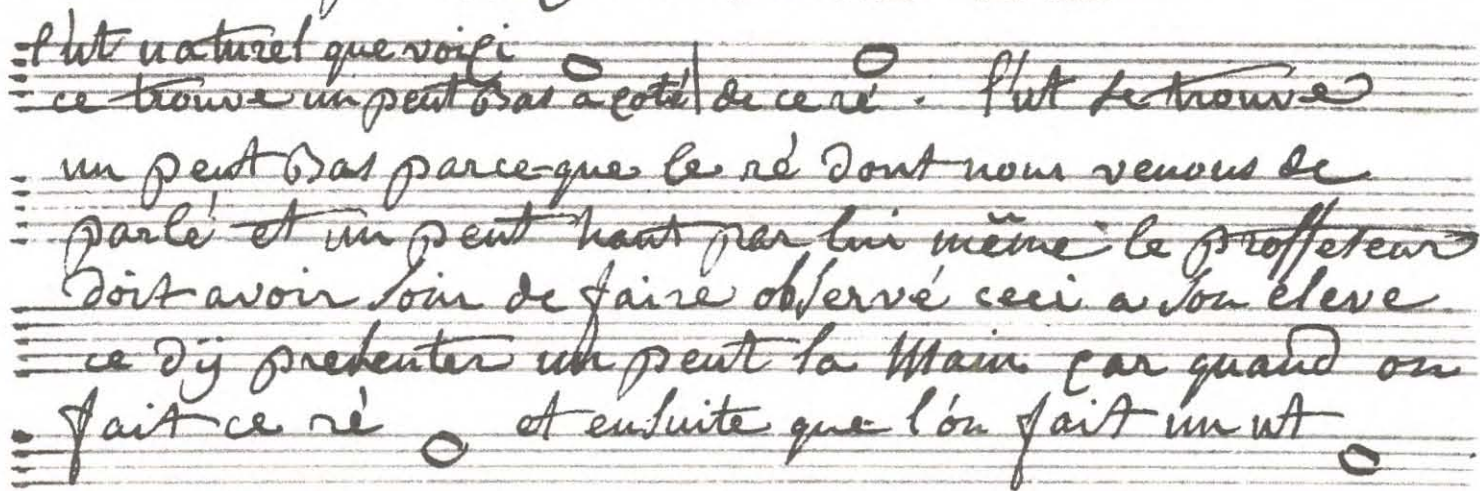 l'ut naturel que voiçi
ce trouve un peut Bas a çoté de ce ré . l'ut se trouve
un peut Bas parce-que le ré dont nous venous de
parlé et un peut haut par lui même le proffeseur
doit avoir soin de faire observé ceci a son éleve
ce dÿ presenter un peut la Main çar quand on
fait ce ré et ensuite que l'on fait un ut